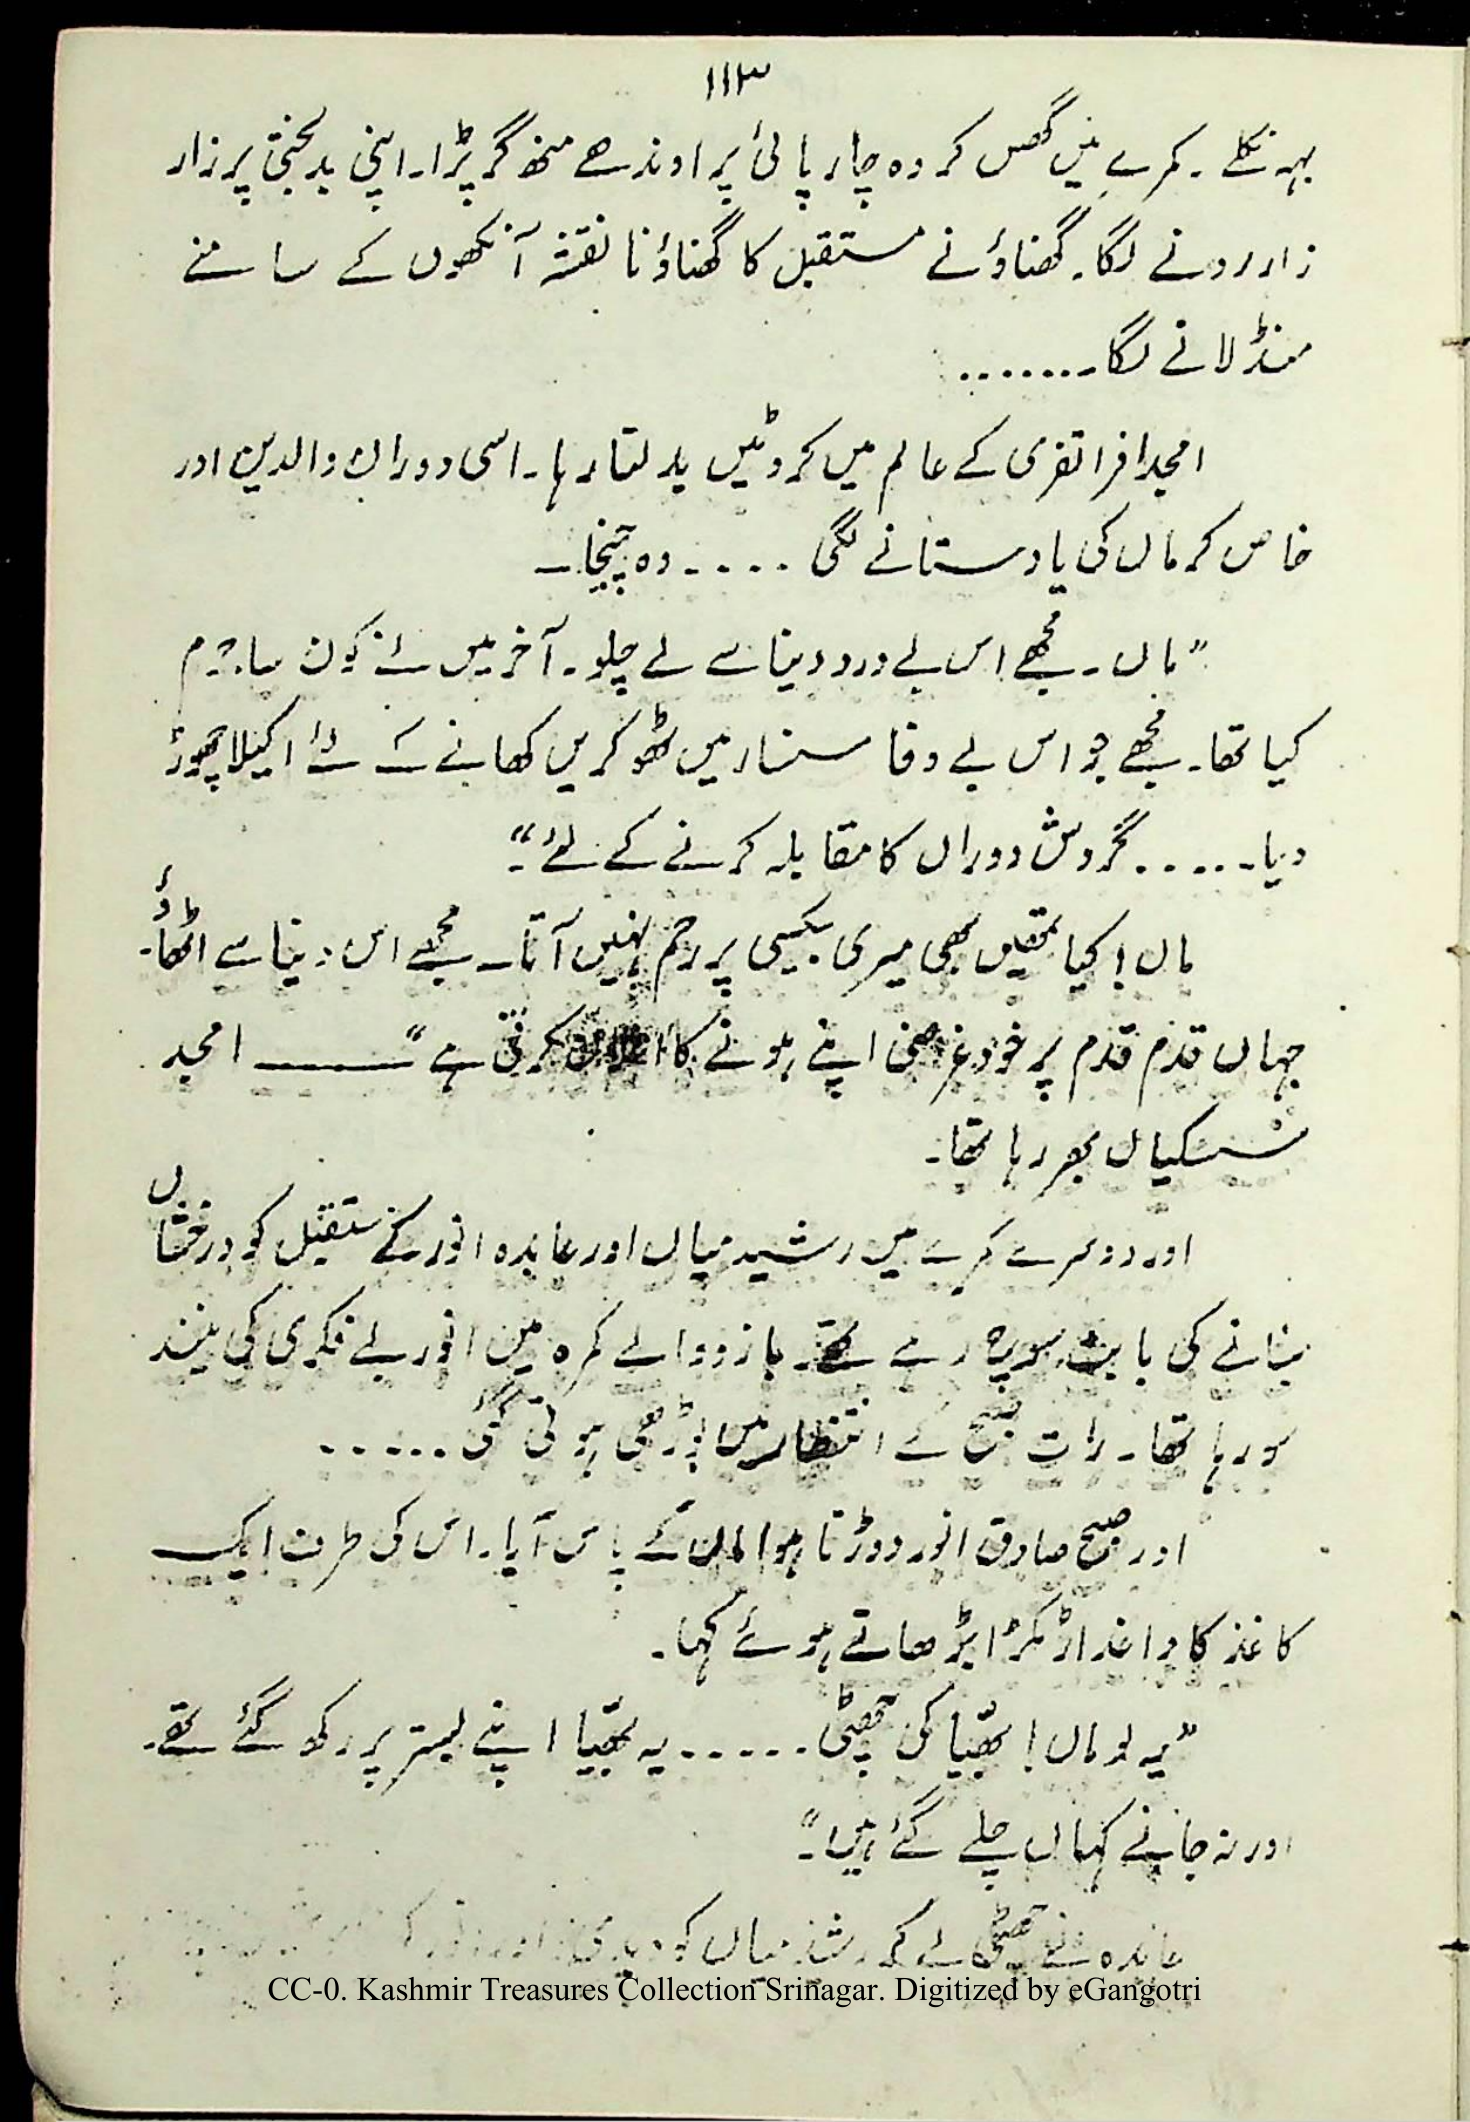 ۱۱۳
بہہ نکلے ۔ کمرے میں گھس کر وہ چارپائی پر اوندھے منھ گر پڑا۔ اپنی بدبختی پر زار
زار رونے لگا۔ گھناؤنے مستقبل کا گھناؤنا نقشہ آنکھوں کے سامنے
منڈلانے لگا۔.......
امجد افراتفری کے عالم میں کروٹیں بدلتا رہا۔ اسی دوران والدین اور
خاص کر ماں کی یاد ستانے لگی ..... وہ چیخا۔
”ماں۔ مجھے اس بے درد دنیا سے لے چلو۔ آخر میں نے کون سا جرم
کیا تھا۔ مجھے جو اس بے وفا سنسار میں ٹھوکریں کھانے کے لئے اکیلا چھوڑ
دیا۔..... گردش دوراں کا مقابلہ کرنے کے لئے“۔
ماں! کیا تمھیں بھی میری بیکسی پر رحم نہیں آتا۔ مجھے اس دنیا سے اٹھاؤ۔
جہاں قدم قدم پر خودغرضی اپنے ہونے کا کرتی ہے“ ——— امجد
سسکیاں بھر رہا تھا۔
اور دوسرے کمرے میں رشید میاں اور عابدہ انور کے مستقبل کو درخشاں
بنانے کی بابت سوچ رہے تھے۔ بازو والے کمرہ میں انور بے فکری کی نیند
سو رہا تھا۔ رات صبح کے انتظار میں بوڑھی ہوتی گئی ......
اور صبح صادق انور دوڑتا ہوا ماں کے پاس آیا۔ اس کی طرف ایک
کاغذ کا داغدار ٹکڑا بڑھاتے ہوئے کہا۔
”یہ لو ماں! بھیّا کی چھٹی ...... یہ بھیّا اپنے بستر پر رکھ گئے تھے۔
اور نہ جانے کہاں چلے گئے ہیں“۔
عابدہ نے چھٹی لے کر رشید میاں کو دیدی۔ اور
CC-0. Kashmir Treasures Collection Srinagar. Digitized by eGangotri